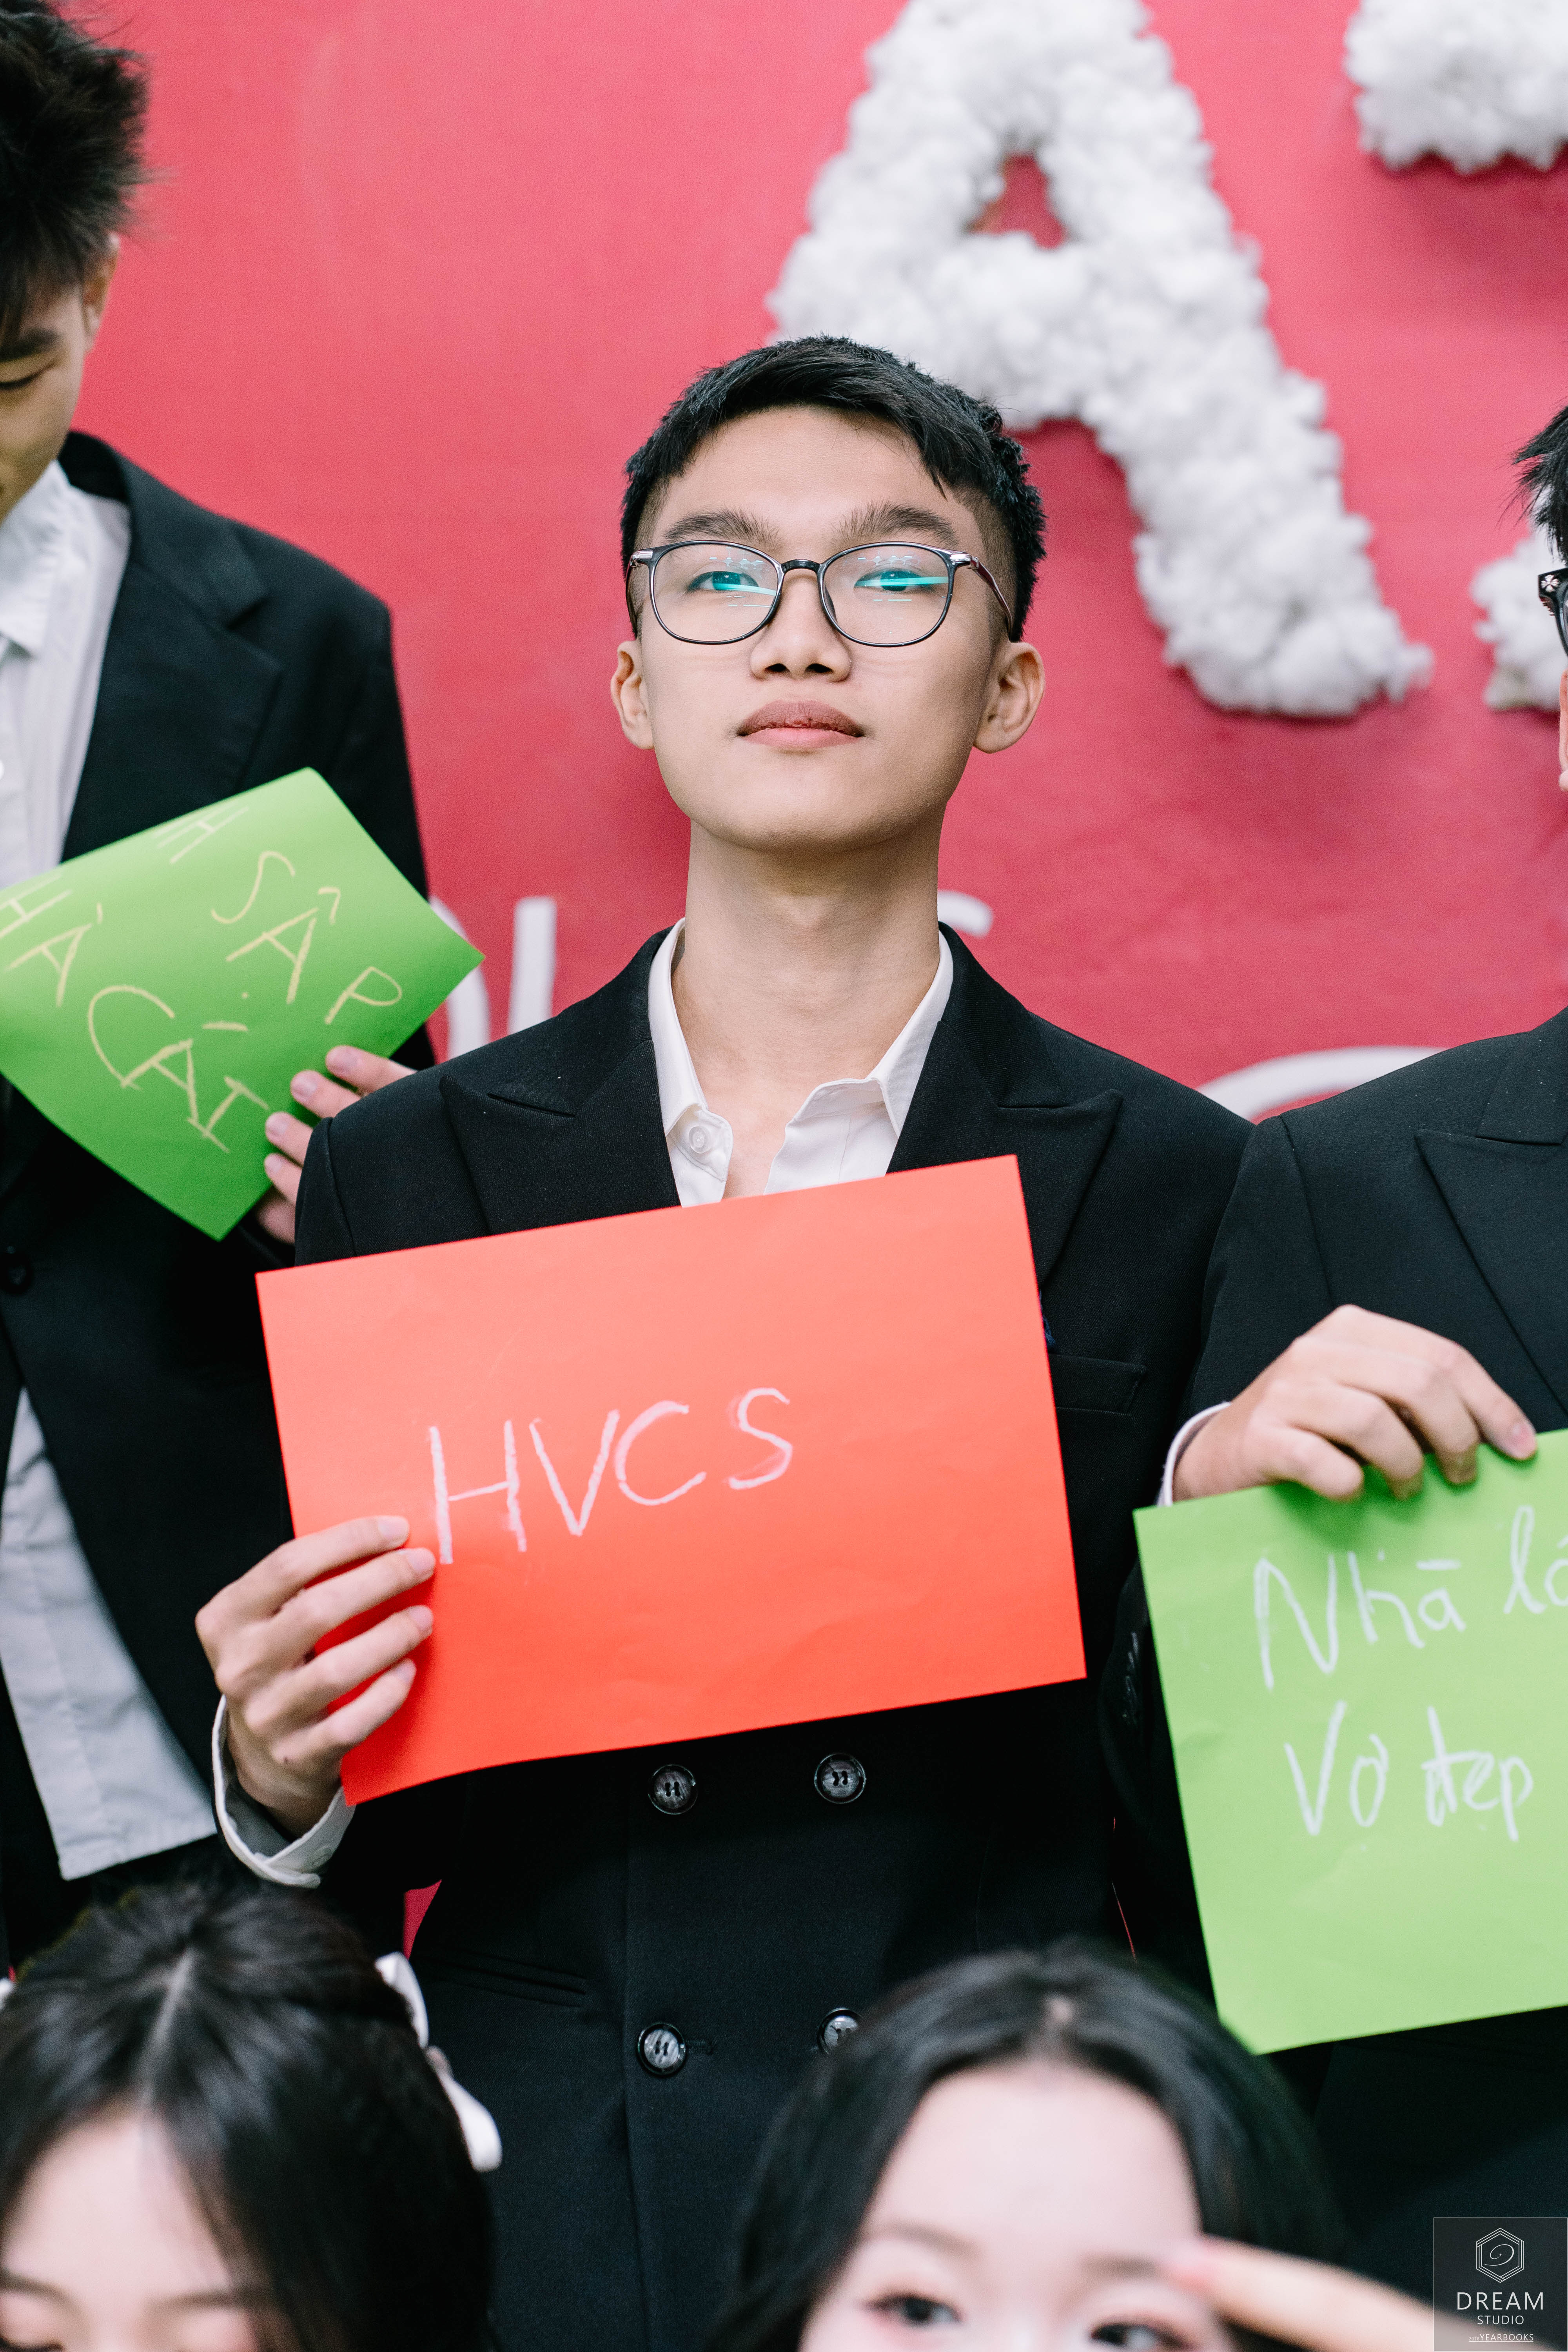 A
SẬP
CÁI
HVCS
Nhà
Vợ đẹp
DREAM
STUDIO
YEARBOOKS